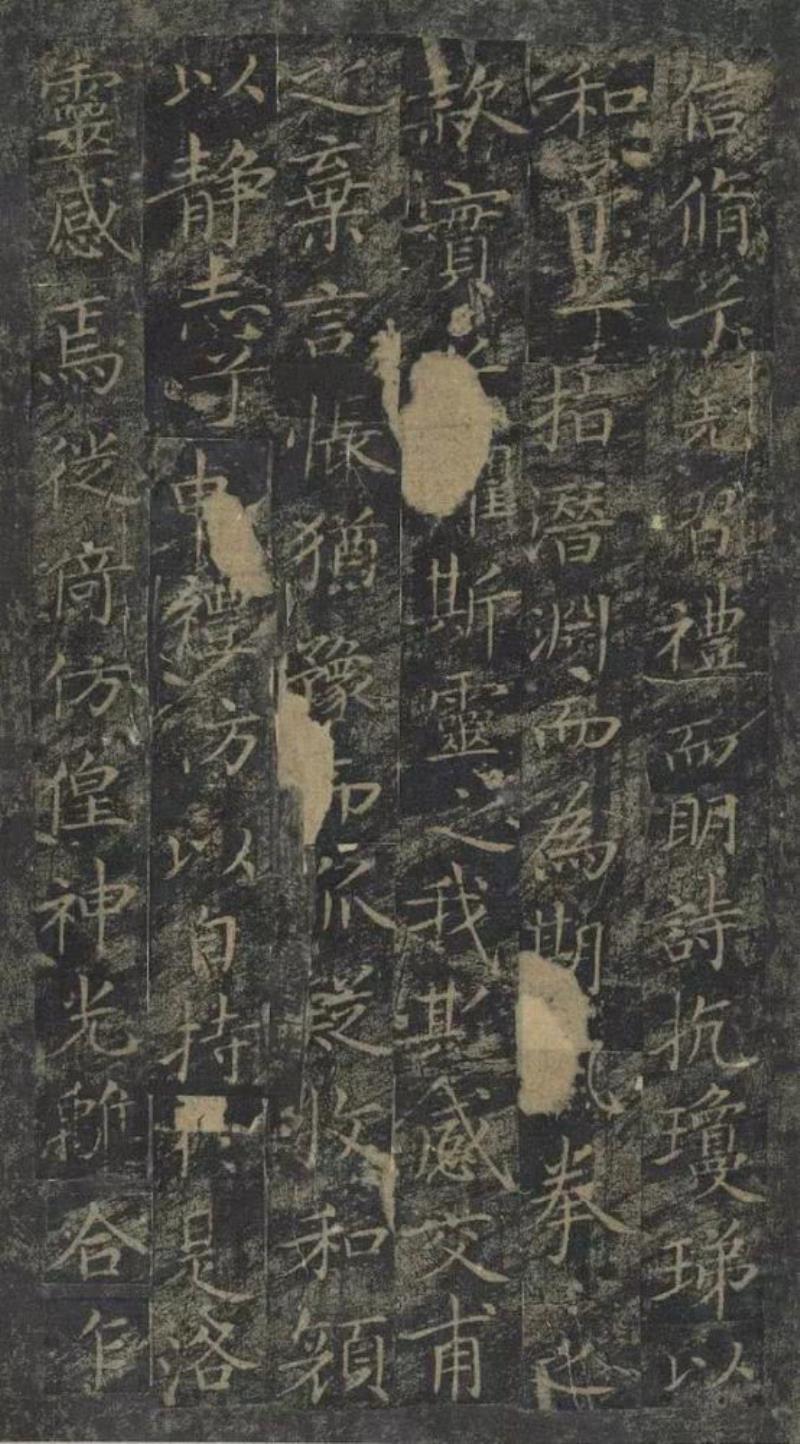 信脩兮羌習禮而明詩抗瓊珶以
和予兮指潛淵而為期拳之
款實懼斯靈之我欺感交甫
之棄言悵猶豫而狐疑收和顏
以静志兮申禮防以自持於是洛
靈感焉徙倚仿偟神光離合乍